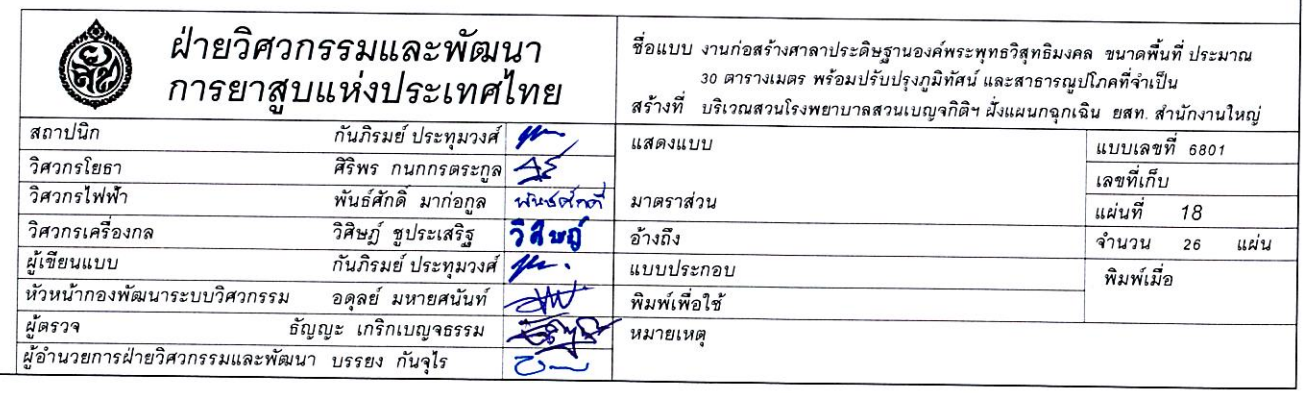 ฝ่ายวิศวกรรมและพัฒนา
การยาสูบแห่งประเทศไทย
ชื่อแบบ งานก่อสร้างศาลาประดิษฐานองค์พระพุทธวิสุทธิมงคล ขนาดพื้นที่ ประมาณ
30 ตารางเมตร พร้อมปรับปรุงภูมิทัศน์ และสาธารณูปโภคที่จำเป็น
สร้างที่ บริเวณสวนโรงพยาบาลสวนเบญจกิติฯ ฝั่งแผนกฉุกเฉิน ยสท. สำนักงานใหญ่
สถาปนิก กันภิรมย์ ประทุมวงศ์
วิศวกรโยธา ศิริพร กนกกรตระกูล
วิศวกรไฟฟ้า พันธ์ศักดิ์ มาก่อกูล พันธ์ศักดิ์
วิศวกรเครื่องกล วิศิษฎ์ ชูประเสริฐ วิศิษฎ์
ผู้เขียนแบบ กันภิรมย์ ประทุมวงศ์
หัวหน้ากองพัฒนาระบบวิศวกรรม อดุลย์ มหายศนันท์
ผู้ตรวจ ธัญญะ เกริกเบญจธรรม
ผู้อำนวยการฝ่ายวิศวกรรมและพัฒนา บรรยง กันจุไร
แสดงแบบ
มาตราส่วน
อ้างถึง
แบบประกอบ
พิมพ์เพื่อใช้
หมายเหตุ
แบบเลขที่ 6801
เลขที่เก็บ
แผ่นที่ 18
จำนวน 26 แผ่น
พิมพ์เมื่อ